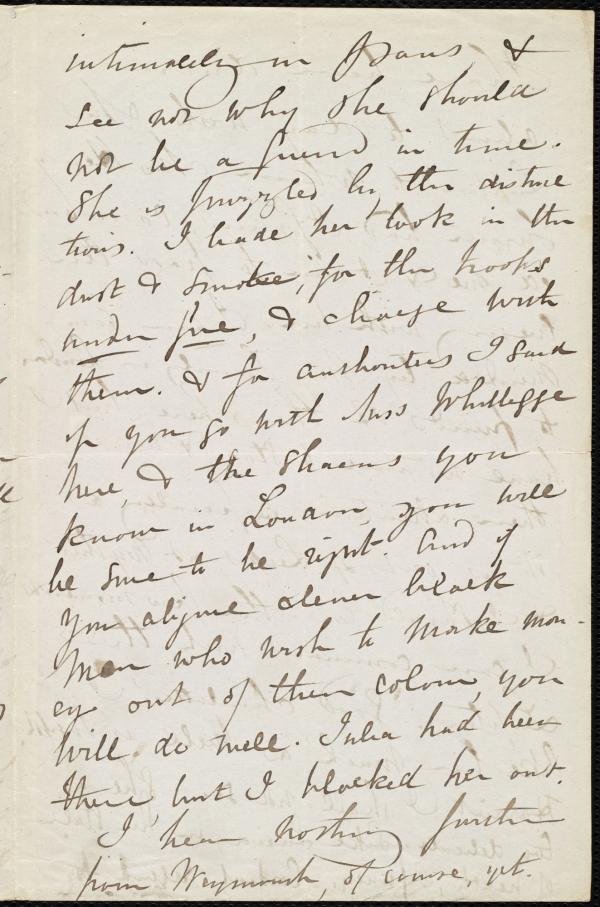 intimately in Paris, &
see not why she should
not be a friend in time.
She is puzzled by the distinc
tions. I bade her look in the
dust & smoke, for the troops
under fire, & charge with
them. & for authorities I said
if you go with Miss Whitlegge
here, & the Shaens you
know in London, you will
be sure to be right. And if
you abjure clever black
men who wish to make mon-
ey out of their colour, you
will do well. Julia had been
there but I blocked her out.
I hear nothing further
from Weymouth, of course, yet.